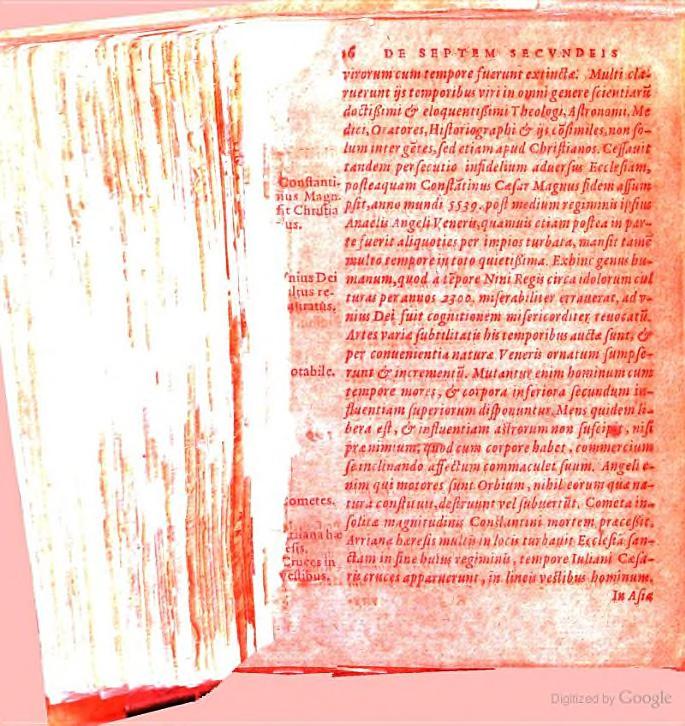 36 DE SEPTEM SECVNDEIS
virorum cum tempore fuerunt extinctæ. Multi cla-
ruerunt ijs temporibus viri in omni genere scientiarũ
doctißimi & eloquentißimi Theologi, Astronomi, Me
dici, Oratores, Historiographi & ijs cõsimiles, non so-
lum inter gẽtes, sed etiam apud Christianos. Cessauit
tandem persecutio infidelium aduersus Ecclesiam,
posteaquam Constãtinus Cæsar Magnus fidem assum
psit, anno mundi 5539. post medium regiminis ipsius
Anaelis Angeli Veneris, quamuis etiam postea in par-
te fuerit aliquoties per impios turbata, mansit tamẽ
multo tempore in toto quietißima. Exhinc genus hu-
manum, quod à tẽpore Nini Regis circa idolorum cul
turas per annos 2300. miserabiliter errauerat, ad v-
nius Dei fuit cognitionem misericorditer reuocatũ.
Artes variæ subtilitatis his temporibus auctæ sunt, &
per conuenientia naturæ Veneris ornatum sumpse-
runt & incrementũ. Mutantur enim hominum cum
tempore mores, & corpora inferiora secundum in-
fluentiam superiorum disponuntur. Mens quidem li-
bera est, & influentiam astrorum non suscipit, nisi
præ nimium, quod cum corpore habet, commercium
se inclinando affectum commaculet suum. Angeli e-
nim qui motores sunt Orbium, nihil eorum quæ na-
tura constituit, destruunt vel subuertũt. Cometa in-
solitæ magnitudinis Constantini mortem præceßit.
Arriana hæresis multis in locis turbauit Ecclesiã san-
ctam in fine huius regiminis, tempore Iuliani Cæsa-
ris cruces apparuerunt, in lineis vestibus hominum.
In Asia
Constanti-
nus Magn.
fit Christia
us.
nius Dei
ultus re-
auratus.
otabile.
Cometes.
rriana hæ
esis.
Cruces in
vestibus.
Digitized by Google